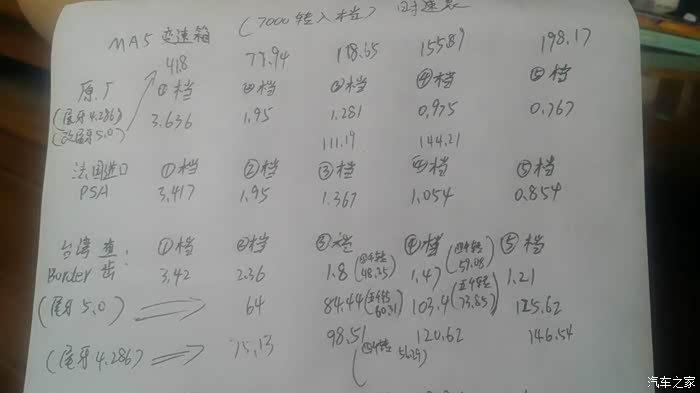 MA5 变速箱 (7000转入档) 时速表
41.8 77.94 118.65 155.89 198.17
原厂 ①档 ②档 ③档 ④档 ⑤档
(尾牙4.286) 3.636 1.95 1.281 0.975 0.767
(改尾牙5.0)
111.19 144.21
法国进口 ①档 ②档 ③档 ④档 ⑤档
PSA 3.417 1.95 1.367 1.054 0.854
台湾直 ①档 ②档 ③档 ④档 ⑤档
Border 齿: 3.42 2.36 1.8 (④千转 48.25) 1.47 (④千转 59.08) 1.21
(尾牙5.0) 64 84.44 (五千转 60.31) 103.4 (五千转 73.85) 125.62
(尾牙4.286) 75.13 98.51 120.62 146.54
(④千转 56.29)
汽车之家